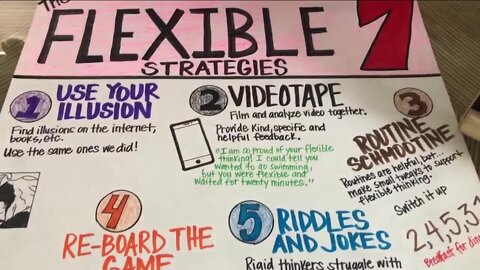 The
FLEXIBLE 7
STRATEGIES
1 USE YOUR
ILLUSION
Find illusions on the internet,
books, etc.
Use the same ones we did!
2 VIDEOTAPE
Film and analyze video together.
Provide kind, specific and
helpful feedback.
"I am so proud of your flexible
thinking! I could tell you
wanted to go swimming,
but you were flexible and
waited for twenty minutes."
3
ROUTINE
SCHMOOTINE
Routines are helpful, but
make small tweaks to support
flexible thinking.
Switch it up
2,4,5,3,1
Breakfast for
4
RE-BOARD THE
GAME
5 RIDDLES
AND JOKES
Rigid thinkers struggle with